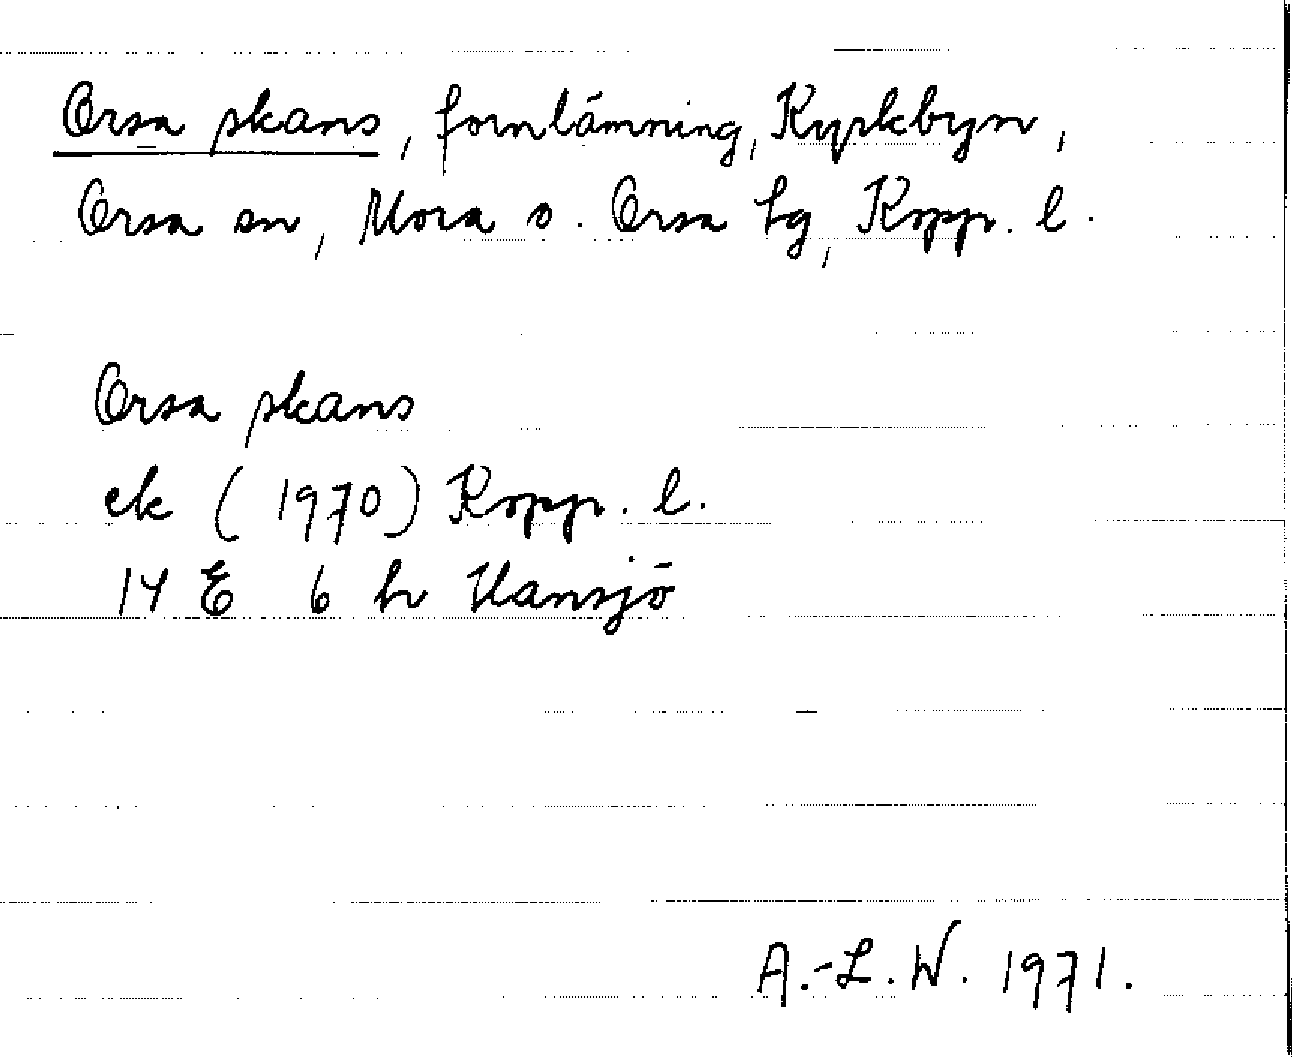 Orsa skans, fornlämning, Kyrkbyn,
Orsa sn, Mora o. Orsa tg, Kopp. l.
Orsa skans
ek (1970) Kopp. l.
14 E 6 h Hansjö
A.-L. W. 1971.